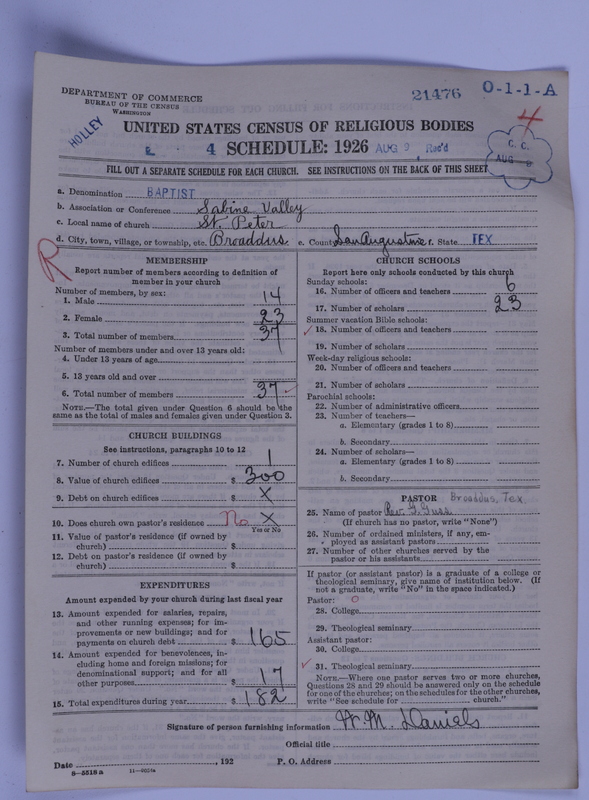 DEPARTMENT OF COMMERCE
BUREAU OF THE CENSUS
WASHINGTON
21476 0-1-1-A
HOLLEY
4
UNITED STATES CENSUS OF RELIGIOUS BODIES
4 SCHEDULE: 1926 AUG 9 Rec'd
C. C.
AUG
FILL OUT A SEPARATE SCHEDULE FOR EACH CHURCH. SEE INSTRUCTIONS ON THE BACK OF THIS SHEET
a. Denomination BAPTIST
b. Association or Conference Sabine Valley
c. Local name of church St. Peter
d. City, town, village, or township, etc. Broaddus e. County San Augustine f. State TEX
R
MEMBERSHIP
Report number of members according to definition of
member in your church
Number of members, by sex:
1. Male 14
2. Female 23
3. Total number of members 37
Number of members under and over 13 years old:
4. Under 13 years of age
5. 13 years old and over
6. Total number of members 37
NOTE.—The total given under Question 6 should be the
same as the total of males and females given under Question 3.
CHURCH BUILDINGS
See instructions, paragraphs 10 to 12
7. Number of church edifices 1
8. Value of church edifices $ 300
9. Debt on church edifices $ X
10. Does church own pastor's residence No X
Yes or No
11. Value of pastor's residence (if owned by
church) $
12. Debt on pastor's residence (if owned by
church) $
EXPENDITURES
Amount expended by your church during last fiscal year
13. Amount expended for salaries, repairs,
and other running expenses; for im-
provements or new buildings; and for
payments on church debt $ 165
14. Amount expended for benevolences, in-
cluding home and foreign missions; for
denominational support; and for all
other purposes $ 17
15. Total expenditures during year $ 182
CHURCH SCHOOLS
Report here only schools conducted by this church
Sunday schools:
16. Number of officers and teachers 6
17. Number of scholars 23
Summer vacation Bible schools:
18. Number of officers and teachers
19. Number of scholars
Week-day religious schools:
20. Number of officers and teachers
21. Number of scholars
Parochial schools:
22. Number of administrative officers
23. Number of teachers—
a. Elementary (grades 1 to 8)
b. Secondary
24. Number of scholars—
a. Elementary (grades 1 to 8)
b. Secondary
PASTOR Broaddus, Tex
25. Name of pastor Rev. G.
(If church has no pastor, write "None")
26. Number of ordained ministers, if any, em-
ployed as assistant pastors
27. Number of other churches served by the
pastor or his assistants
If pastor (or assistant pastor) is a graduate of a college or
theological seminary, give name of institution below. (If
not a graduate, write "No" in the space indicated.)
Pastor: 0
28. College
29. Theological seminary
Assistant pastor:
30. College
31. Theological seminary
NOTE.—Where one pastor serves two or more churches,
Questions 28 and 29 should be answered only on the schedule
for one of the churches; on the schedules for the other churches,
write "See schedule for church."
Signature of person furnishing information W. M. Daniels
Official title
Date , 192 P. O. Address
8-5518 a 11-8623a